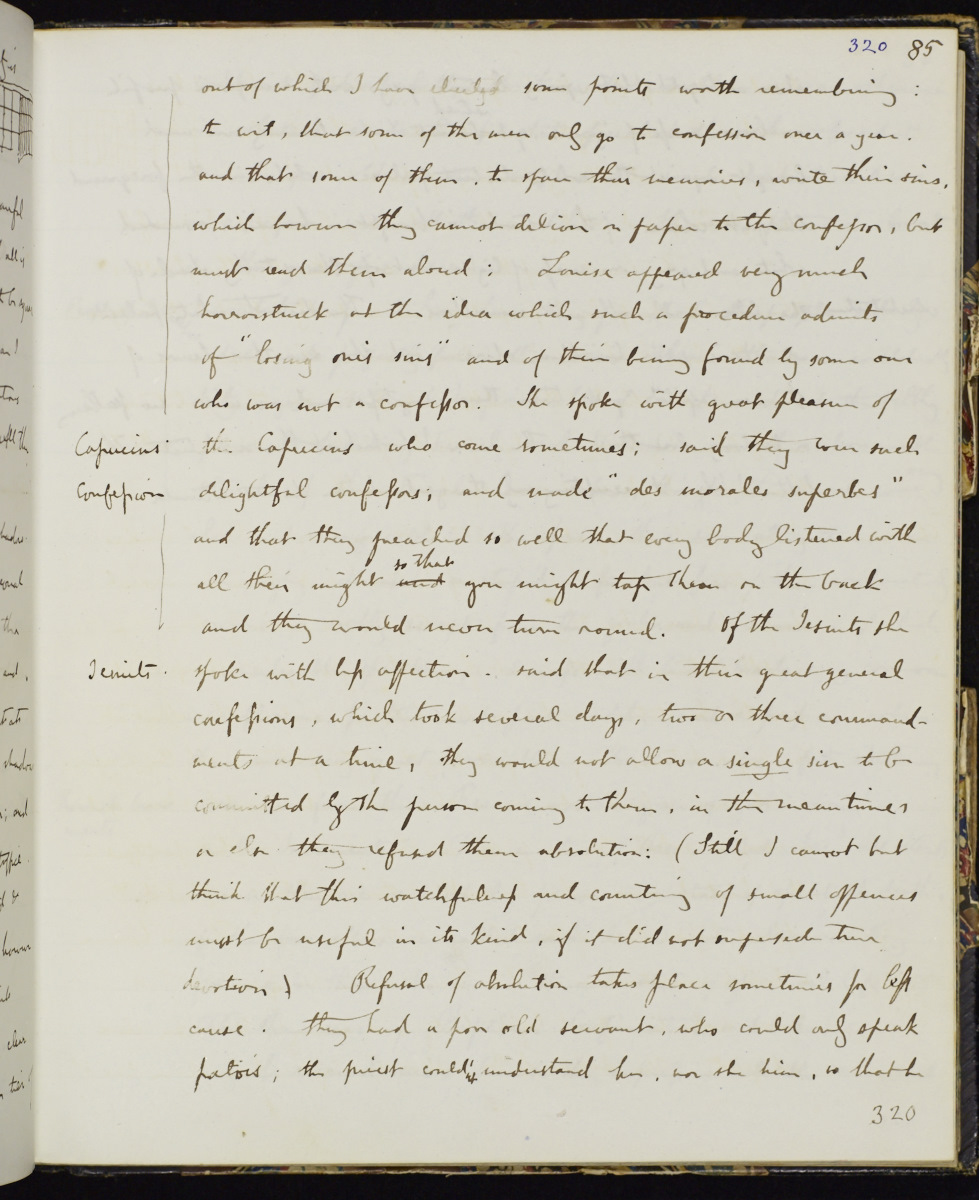 320 85
out of which I have elicited some points worth remembering :
to wit, that some of the men only go to confession once a year.
and that some of them, to spare their memories, write their sins,
which however they cannot deliver on paper to the confessor, but
must read them aloud ; Louise appeared very much
horrorstruck at the idea which such a procedure admits
of "losing one's sins" and of their being found by some one
who was not a confessor. She spoke with great pleasure of
Capucins the Capucins who come sometimes; said they were such
Confession delightful confessors; and made "des morales superbes"
and that they preached so well that every body listened with
so that
all their might and you might tap them on the back
and they would never turn round. Of the Jesuits she
Jesuits. spoke with less affection. said that in their great general
confessions, which took several days, two or three command-
ments at a time, they would not allow a single sin to be
committed by the person coming to them, in the meantimes
or else they refused them absolution: (Still I cannot but
think that this watchfulness and counting of small offences
must be useful in its kind, if it did not supersede true
devotion) Refusal of absolution takes place sometimes for less
cause. They had a poor old servant, who could only speak
patois; the priest couldn't understand her, nor she him, so that he
320